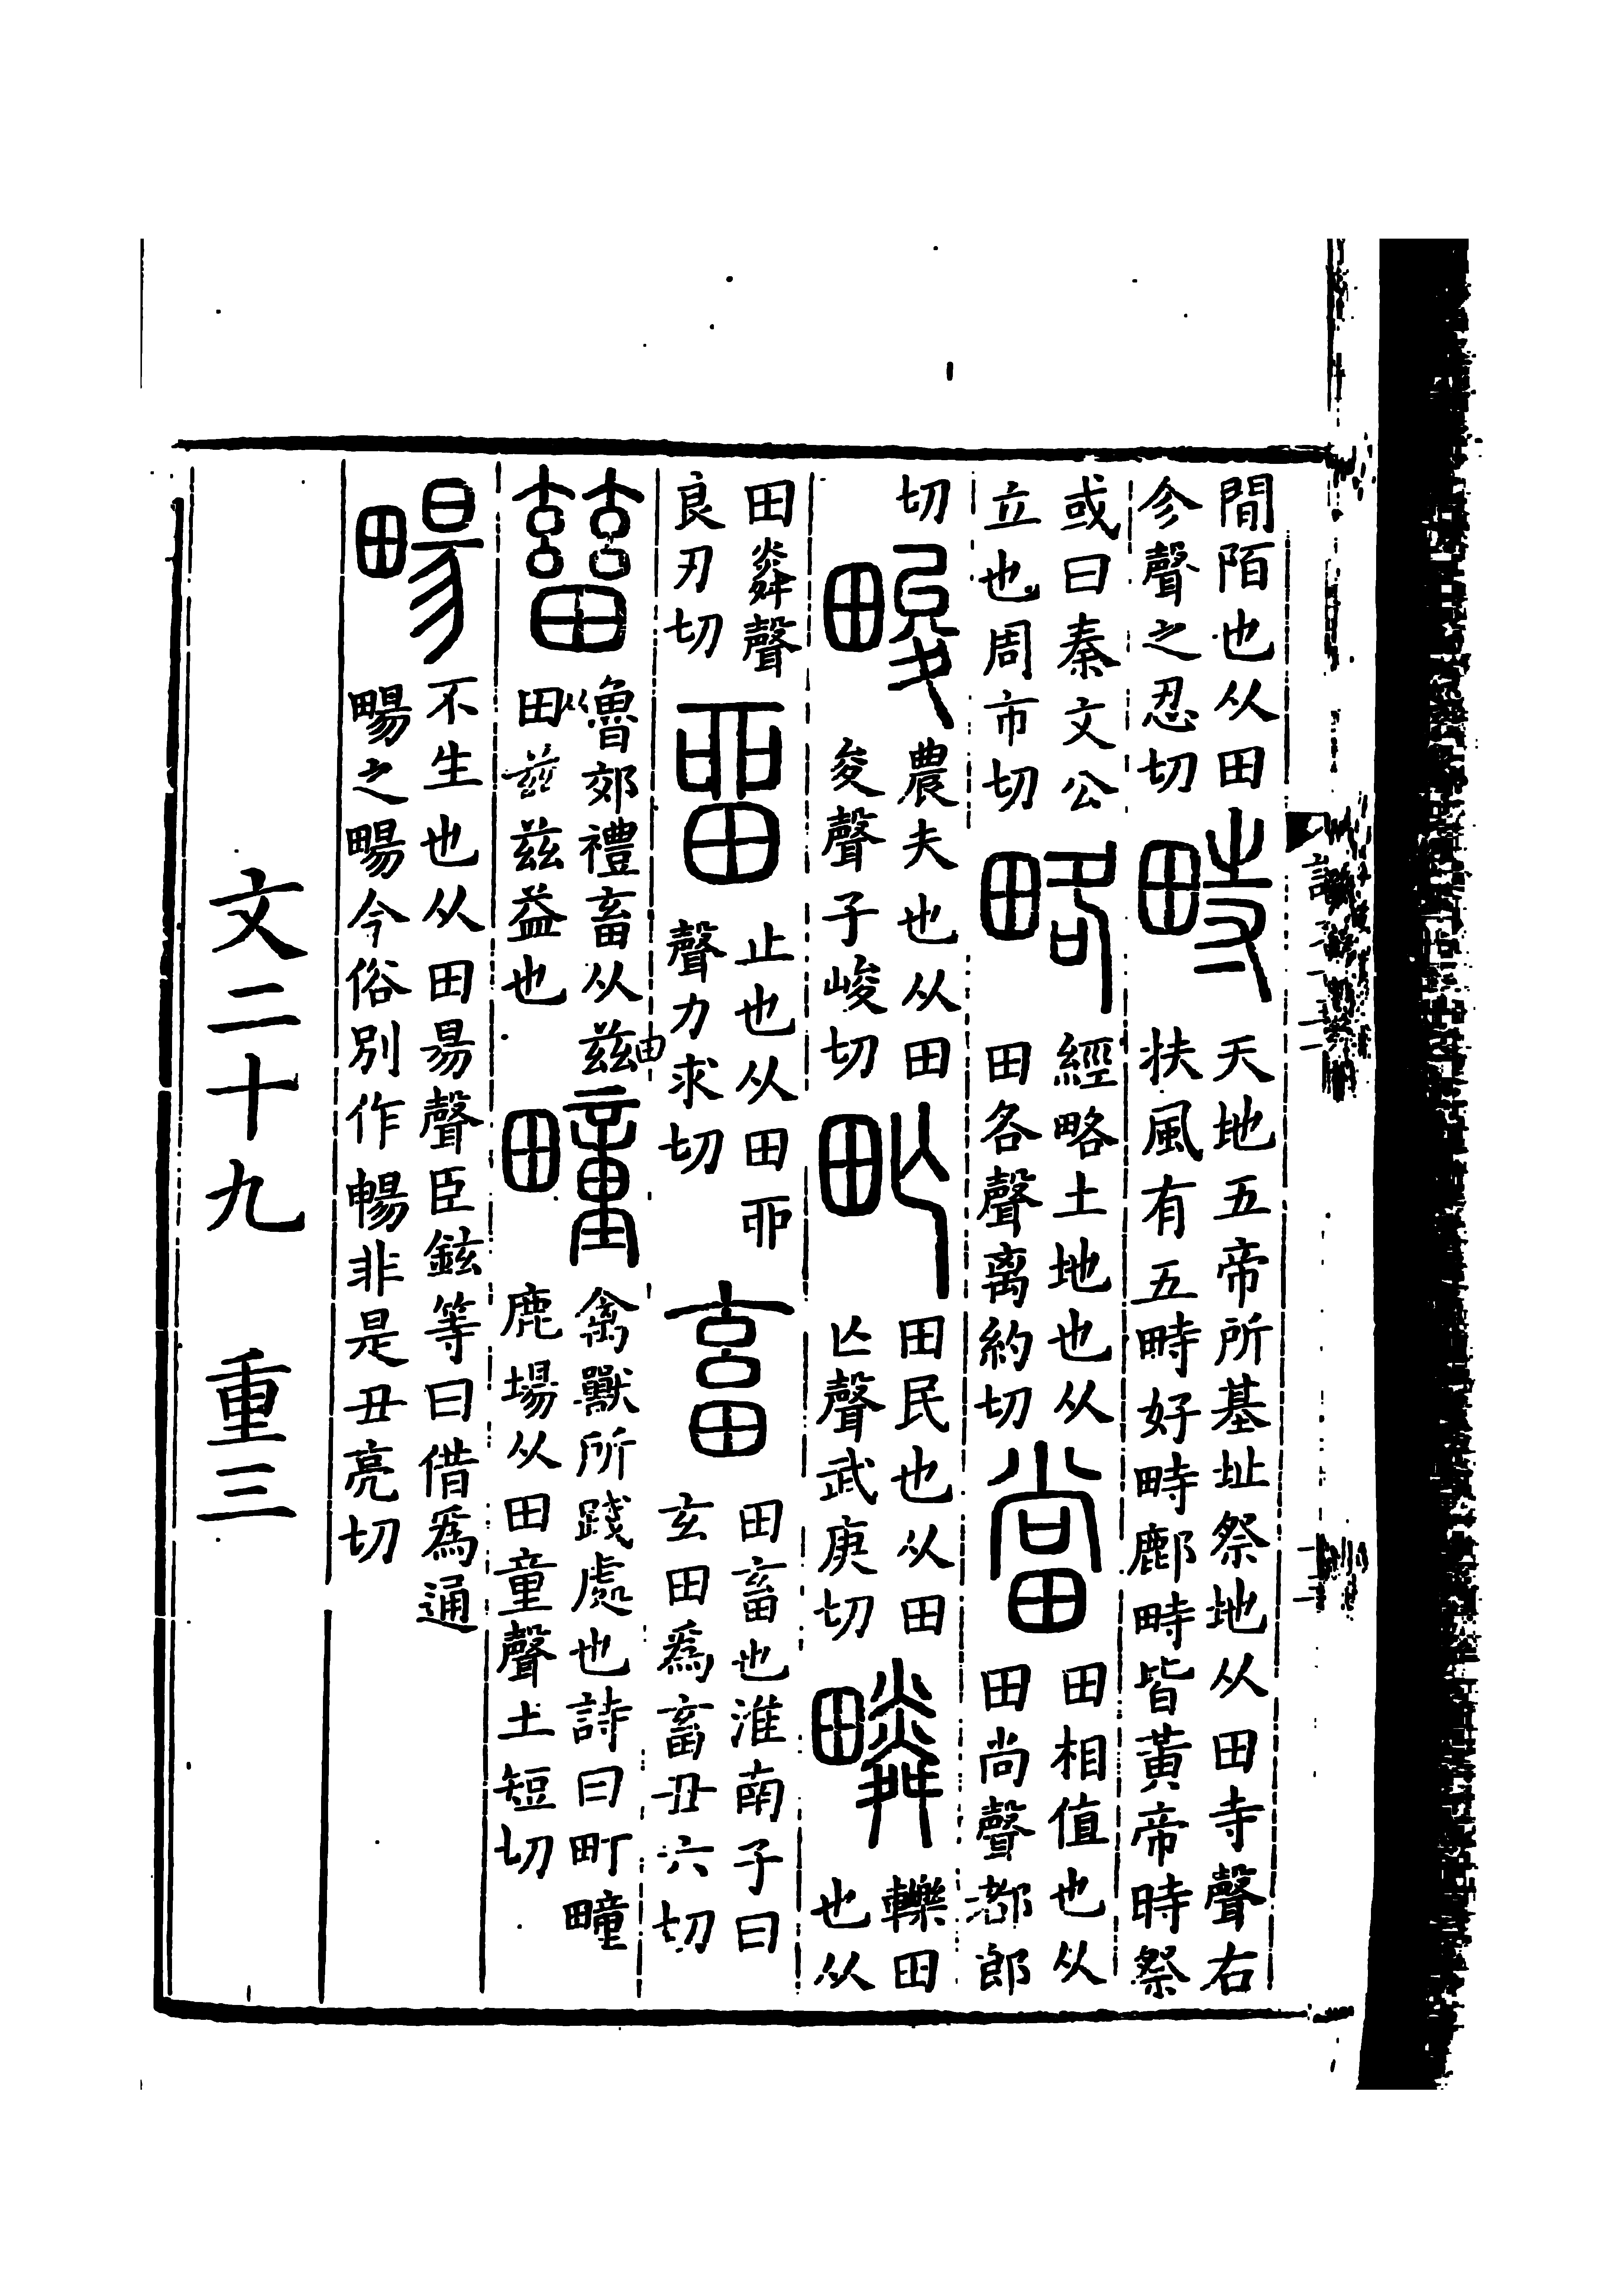 閒陌也从田㐱聲之忍切畤天地五帝所基址祭地从田寺聲右扶風有五畤好畤鄜畤皆黃帝時祭
或曰秦文公立也周市切略經略土地也从田各聲离約切當田相值也从田尚聲都郎
切畯農夫也从田夋聲子峻切甿田民也从田亾聲武庚切疄轢田也从
田粦聲良刃切畱止也从田丣聲力求切畜田畜也淮南子曰玄田爲畜丑六切
𤲸魯郊禮畜从田兹兹益也疃禽獸所踐處也詩曰町疃鹿場从田童聲土短切
畼不生也从田昜聲臣鉉等曰借爲通畼之畼今俗別作暢非是丑亮切
文二十九 重三